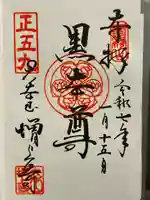 奉拝
令和七年
一月十五日
黒本尊
正五九
増上寺